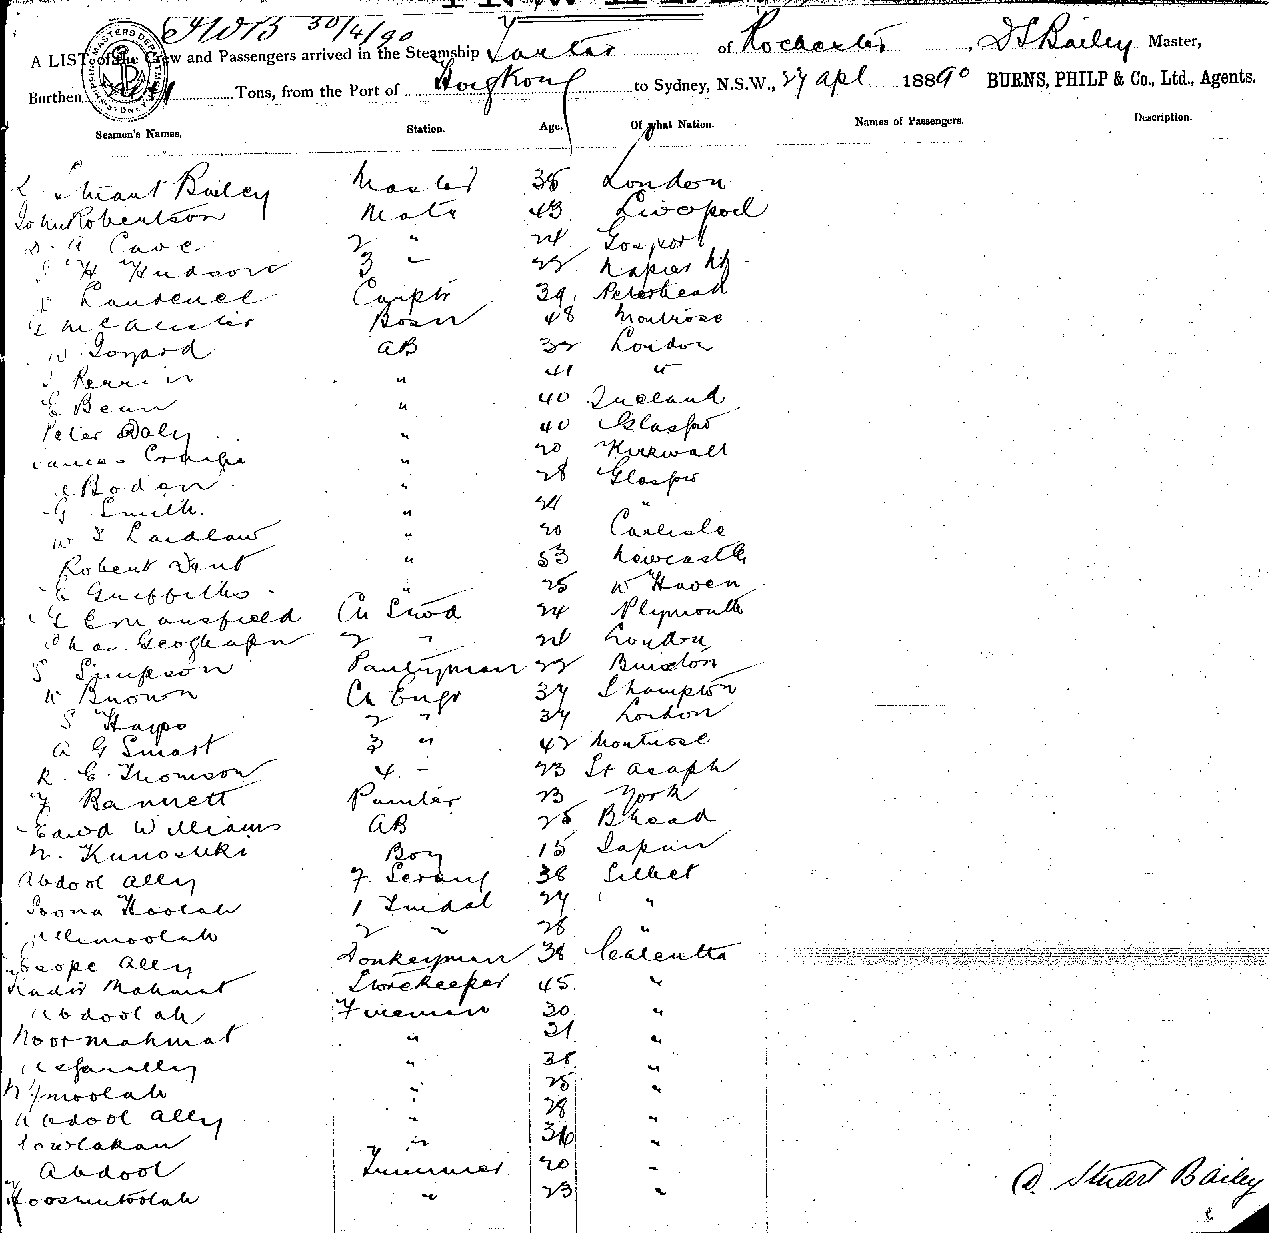 30/4/90
A LIST of the Crew and Passengers arrived in the Steamship Tartar of Rochester, D S Bailey Master,
Burthen Tons, from the Port of Hongkong to Sydney, N.S.W., 27 Apl 1890 BURNS, PHILP & Co., Ltd., Agents.
Seamen's Names. Station. Age. Of what Nation. Names of Passengers. Description.
Stuart Bailey Master 38 London
John Robertson Mate 43 Liverpool
Cave 2 " 24 Gosport
H Hudson 3 " 22 Napier NZ
Laurence Carptr 39 Peterhead
McAlister Bosn 48 Montrose
W AB 32 London
Perrin " 41 "
E Bean " 40 Queland
Peter Daly " 40 Glasgow
James Craigie " 20 Kirkwall
Boden " 28 Glasgow
G Smith " 24 "
W Laidlaw " 20 Carlisle
Robert Dent " 53 Newcastle
E Griffiths " 25 W Haven
G E Mansfield Ch Stwd 24 Plymouth
Chas Geoghagan 2 " 24 London
S Simpson Pantryman 22 Buxton
W Brown Ch Engr 37 S hampton
S Hayes 2 " 37 London
A G Smart 3 " 42 Montrose
R. E. Thomson 4 " 23 St Asaph
Bannett Painter 23 York
Edwd Williams AB 25 B head
N. Kunosuki Boy 15 Japan
Abdool Ally F. Serang 38 Silhet
Poona Koolah 1 Tindal 27 "
Allimoolah 2 " 28 "
Esope Ally Donkeyman 38 Calcutta
Kadir Mahmat Storekeeper 45 "
Abdoolah Fireman 30 "
Noormahmat " 31 "
Asfarally " 38 "
Nymoolah " 25 "
Abdool Ally " 28 "
" 36 "
Abdool Trimmer 20 "
Hooshmutoolah " 23 "
D. Stuart Bailey